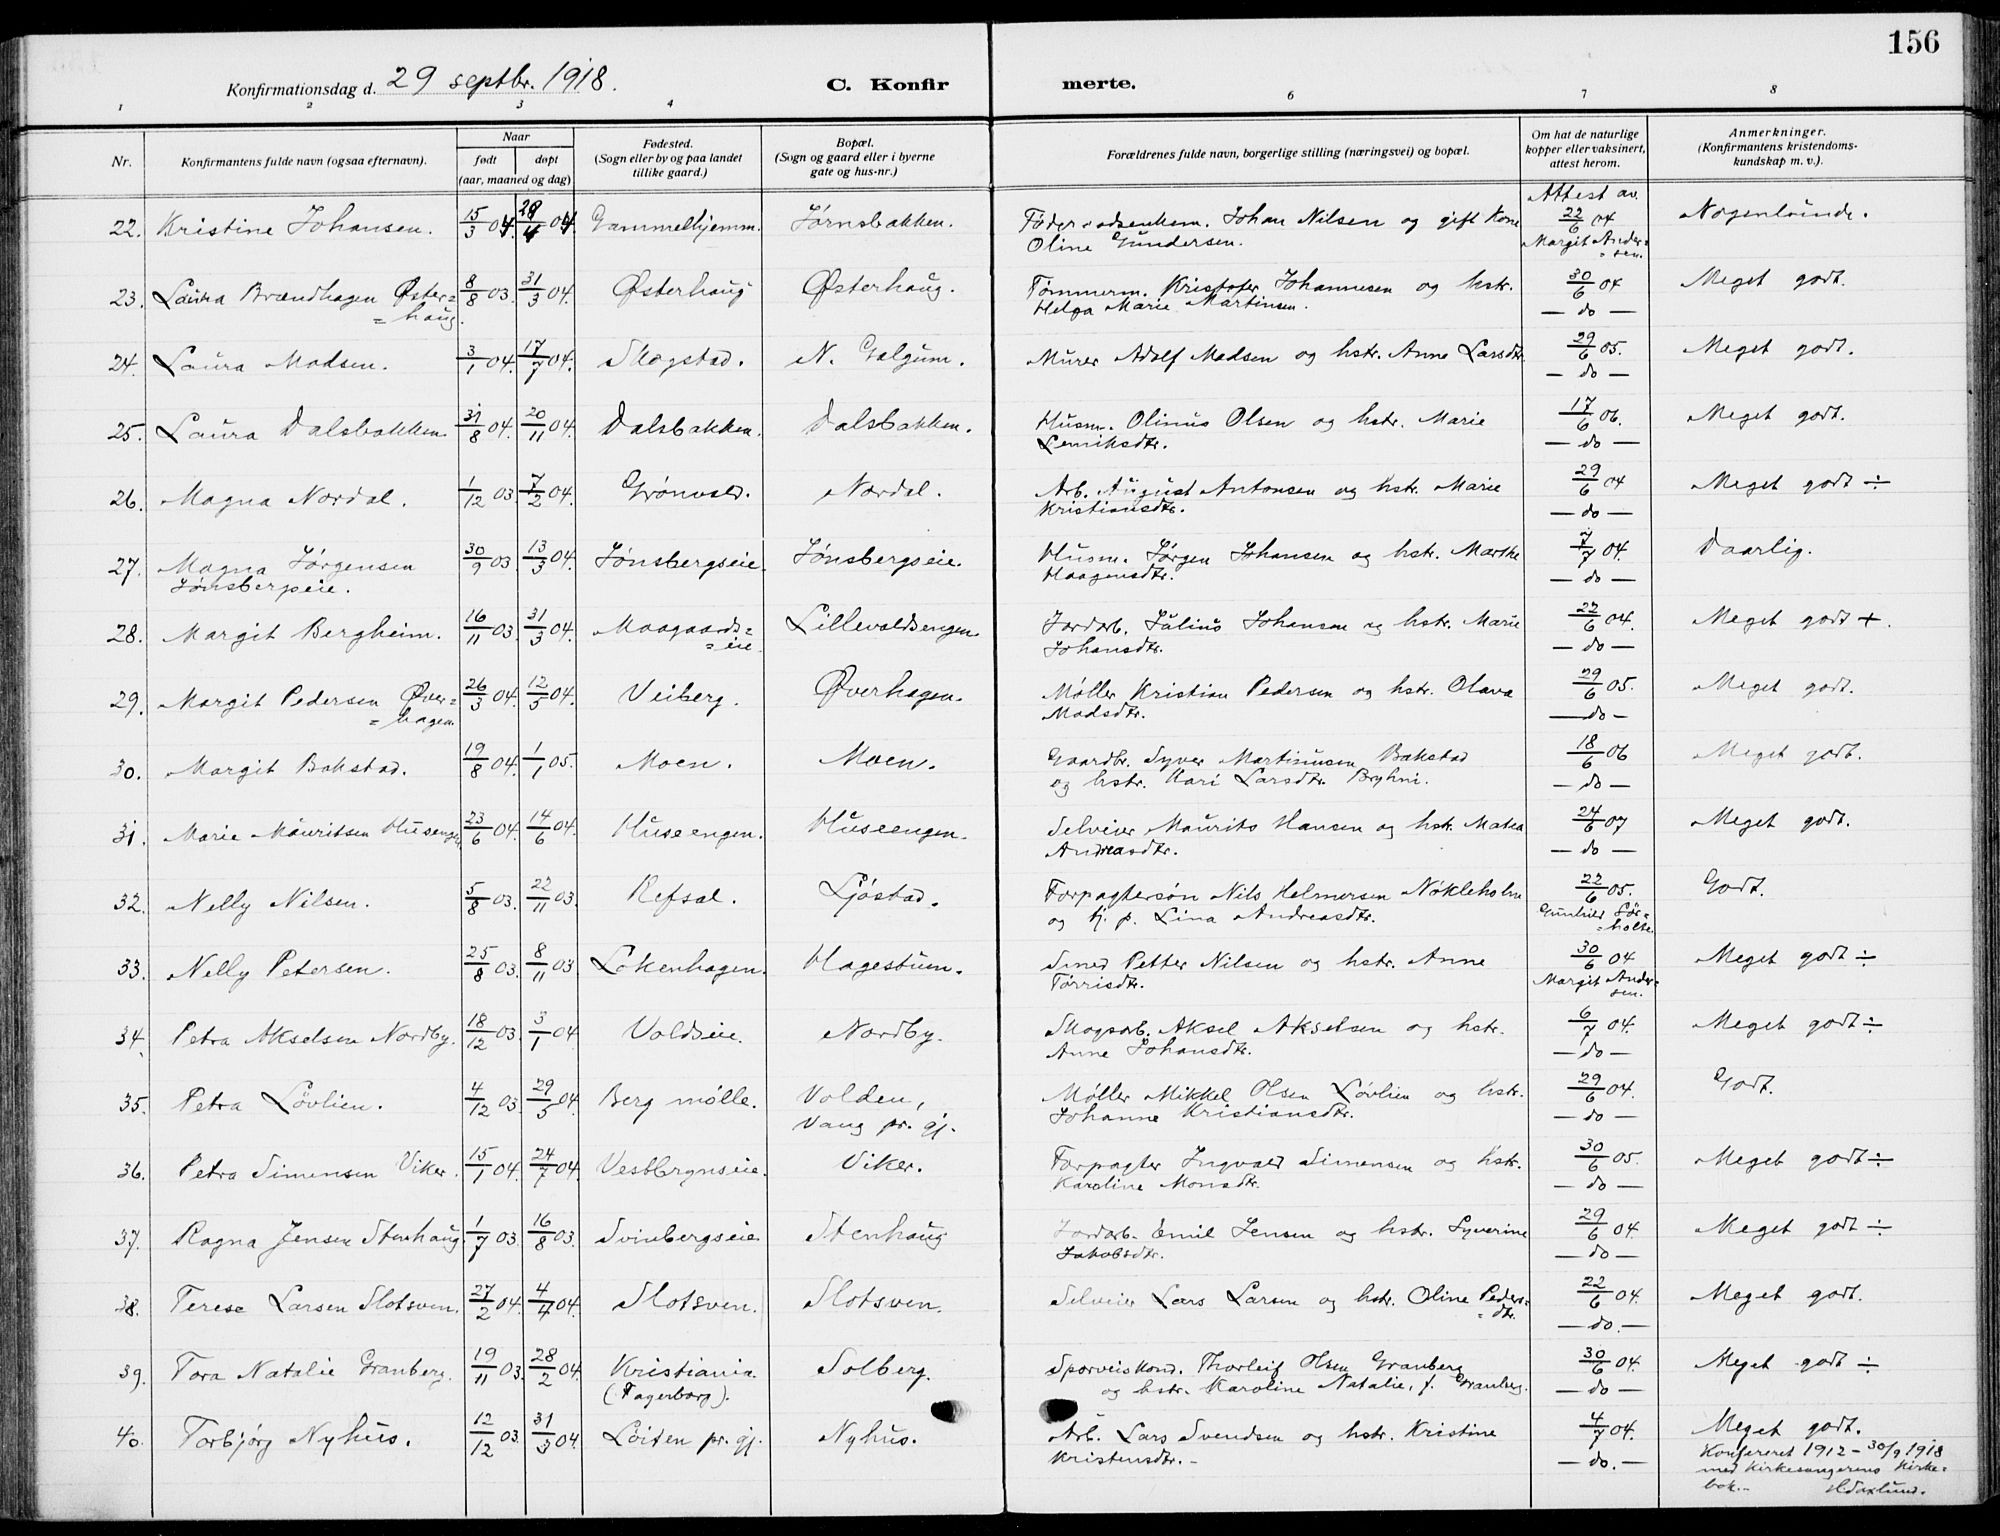 156
Konfirmationsdag d. 29 septbr. 1918.
C. Konfirmerte.
1 2 3 4 6 7 8
Nr. Konfirmantens fulde navn (ogsaa efternavn). Naar født døpt (aar, maaned og dag) Fødested. (Sogn eller by og paa landet tillike gaard.) Bopæl. (Sogn og gaard eller i byerne gate og hus-nr.) Forældrenes fulde navn, borgerlige stilling (næringsvei) og bopæl. Om hat de naturlige kopper eller vaksinert, attest herom. Anmerkninger. (Konfirmantens kristendomskundskap m. v.).
22. Kristine Johansen. 15/3 04. 28/4 04 Gammelhjemm. Jørnsbakken. Johan Nilsen og gift Kone Attest av 22/6 04 Nogenlunde.
Oline Gundersen. Margit Ander=
=sen.
23. Laura Brændhagen Øster= 8/8 03. 31/3 04. Østerhaug Østerhaug. Tømmerm. Kristofer Johannesen og hstr. 30/6 04 Meget godt.
=haug. Helga Marie Martinsen. — do —
24. Laura Madsen. 3/1 04. 17/7 04. Skogstad. N. Galgum. Murer Adolf Madsen og hstr. Anne Larsdtr. 29/6 05. Meget godt.
— do —
25. Laura Dalsbakken. 31/8 04. 20/11 04. Dalsbakken. Dalsbakken. Husm. Olinus Olsen og hstr. Marie 17/6 06. Meget godt.
Lemiksdtr. — do —
26. Magna Nordal. 1/12 03. 7/2 04. Grønvold. Nordal. Arb. August Antonsen og hstr. Marie 29/6 04 Meget godt ÷
Kristiansdtr. — do —
27. Magna Jørgensen 30/9 03 13/3 04. Jønsbergseie. Jønsbergseie. Husm. Jørgen Johansen og hstr. Marthe 7/7 04. Daarlig.
Jønsbergseie. Haagensdtr. — do —
28. Margit Bergheim. 16/11 03. 31/3 04. Maagaards= Lillevoldsengen. Jordarb. Julius Johansen og hstr. Marie 22/6 04. Meget godt +.
=eie. Johansdtr. — do —
29. Margit Pedersen Øver= 26/3 04. 12/5 04. Veiberg. Øverhagen. Møller Kristian Pedersen og hstr. Olava 29/6 05. Meget godt.
=hagen Madsdtr. — do —
30. Margit Bakstad. 19/8 04. 1/1 05. Moen. Moen. Gaardbr. Syver Martinusen Bakstad 18/6 06 Meget godt.
og hstr. Kari Larsdtr. Bryhni. — do —
31. Marie Mauritsen Huseengen 23/6 04. 14/6 04. Huseengen. Huseengen. Selveier Maurits Hansen og hstr. Matea 24/6 07 Meget godt.
Andreasdtr. — do —
32. Nelly Nilsen. 5/8 03. 22/11 03. Refsal. Ljøstad. Forpagtersøn Nils Helmersen Nøkleholm 22/6 05. Godt.
og tj. p. Lina Andreasdtr. Gunhild Sør=
=holte.
33. Nelly Petersen. 25/8 03. 8/11 03 Løkenhagen. Hagestuen. Smed Petter Nilsen og hstr. Anne 30/6 04 Meget godt ÷
Tørrisdtr. Margit Ander=
sen.
34. Petra Akselsen Nordby. 18/12 03. 3/1 04 Voldseie. Nordby. Skogsarb. Aksel Akselsen og hstr. 6/7 04. Meget godt ÷
Anne Johansdtr. — do —
35. Petra Løvlien. 4/12 03. 29/5 04. Berg mølle. Volden, Møller Mikkel Olsen Løvlien og hstr. 29/6 04. Godt.
Vang pr. gj. Johanne Kristiansdtr. — do —
36. Petra Simensen Viker. 15/1 04. 24/7 04. Vestbergnseie. Viker. Forpagter Ingvald Simensen og hstr. 30/6 05. Meget godt ÷
Karoline Monsdtr. — do —
37. Ragna Jensen Stenhaug. 1/7 03. 16/8 03. Svinbergseie Stenhaug Jordarb. Emil Jensen og hstr. Syverine 29/6 04. Meget godt ÷
Jakobsdtr. — do —
38. Terese Larsen Slotsven. 27/2 04. 4/4 04. Slotsven. Slotsven. Selveier Lars Larsen og hstr. Oline Peders= 22/6 04. Meget godt.
=dtr. — do. —
39. Tora Natalie Granberg. 19/11 03. 28/2 04. Kristiania Solberg. Sporveiskond. Thorleif Olsen Granberg 30/6 04. Meget godt ÷
(Fagerborg). og hstr. Karoline Natalie, f. Granberg. — do —
40. Torbjørg Nyhus. 12/12 03. 31/3 04. Løiten pr. gj. Nyhus. Arb. Lars Svendsen og hstr. Kristine 4/7 04. Meget godt.
Kristensdtr. — do. — Konfereret 1912 – 30/9 1918
med Kirkesangerens Kirke=
bok.